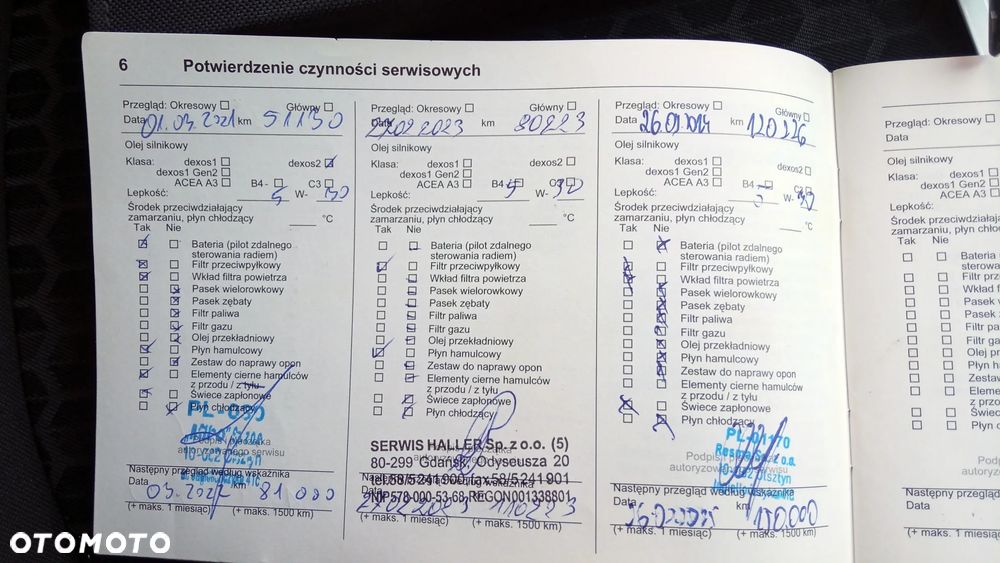 6 Potwierdzenie czynności serwisowych
Przegląd: Okresowy Główny
Data 01.03.2021 km 51130
Olej silnikowy
Klasa: dexos1 dexos2
dexos1 Gen2
ACEA A3 B4 - C3
Lepkość: 5 W- 30
Środek przeciwdziałający
zamarzaniu, płyn chłodzący °C
Tak Nie
Bateria (pilot zdalnego
sterowania radiem)
Filtr przeciwpyłkowy
Wkład filtra powietrza
Pasek wielorowkowy
Pasek zębaty
Filtr paliwa
Filtr gazu
Olej przekładniowy
Płyn hamulcowy
Zestaw do naprawy opon
Elementy cierne hamulców
z przodu / z tyłu
Świece zapłonowe
Płyn chłodzący
autoryzowanego serwisu
Następny przegląd według wskaźnika
Data km
81 000
(+ maks. 1 miesiąc) (+ maks. 1500 km)
Przegląd: Okresowy Główny
Data 27.02.2023 km 80223
Olej silnikowy
Klasa: dexos1 dexos2
dexos1 Gen2
ACEA A3 B4 C3
Lepkość: 5 W- 30
Środek przeciwdziałający
zamarzaniu, płyn chłodzący °C
Tak Nie
Bateria (pilot zdalnego
sterowania radiem)
Filtr przeciwpyłkowy
Wkład filtra powietrza
Pasek wielorowkowy
Pasek zębaty
Filtr paliwa
Filtr gazu
Olej przekładniowy
Płyn hamulcowy
Zestaw do naprawy opon
Elementy cierne hamulców
z przodu / z tyłu
Świece zapłonowe
Płyn chłodzący
SERWIS HALLER Sp. z o.o. (5)
80-299 Gdańsk, Odyseusza 20
tel.58/5241900, fax 58/5241901
NIP 578-000-53-68, REGON 001338801
Data
(+ maks. 1 miesiąc) (+ maks. 1500 km)
Przegląd: Okresowy Główny
Data km 120226
Olej silnikowy
Klasa: dexos1 dexos2
dexos1 Gen2
ACEA A3 B4 C3
Lepkość: 5 W- 30
Środek przeciwdziałający
zamarzaniu, płyn chłodzący °C
Tak Nie
Bateria (pilot zdalnego
sterowania radiem)
Filtr przeciwpyłkowy
Wkład filtra powietrza
Pasek wielorowkowy
Pasek zębaty
Filtr paliwa
Filtr gazu
Olej przekładniowy
Płyn hamulcowy
Zestaw do naprawy opon
Elementy cierne hamulców
z przodu / z tyłu
Świece zapłonowe
Płyn chłodzący
Następny przegląd według wskaźnika
Data km 150.000
(+ maks. 1 miesiąc) (+ maks. 1500 km)
Przegląd: Okresowy
Data
Olej silnikowy
Klasa: dexos1
dexos1 Gen2
ACEA A3
Lepkość:
Tak Nie
Następny przegląd
Data
(+ maks. 1 miesiąc)
OTOMOTO